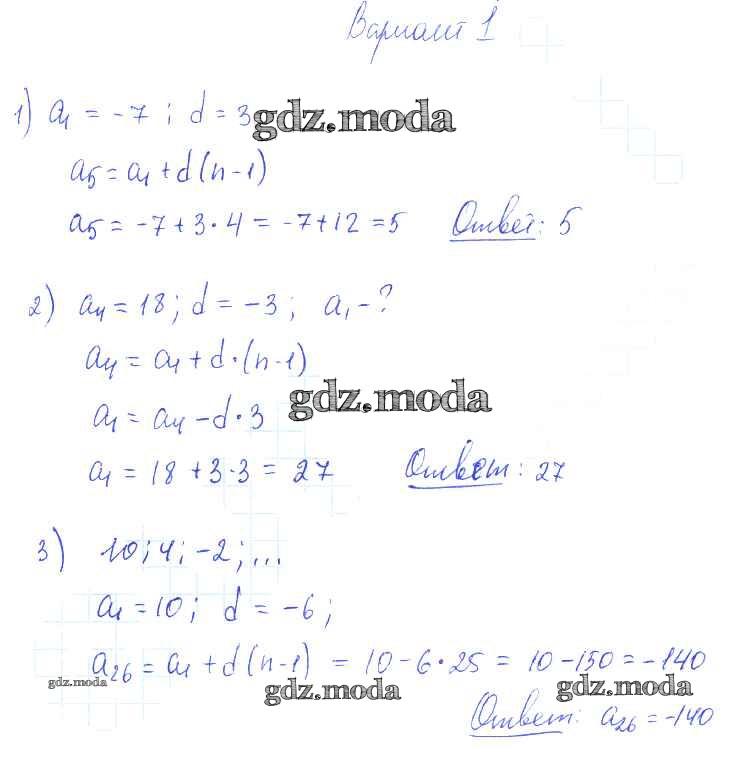 Вариант 1
1) a₁ = -7 ; d = 3 gdz.moda
a₅ = a₁ + d(n-1)
a₅ = -7 + 3·4 = -7+12 = 5 Ответ: 5
2) a₄ = 18 ; d = -3 ; a₁ - ?
a₄ = a₁ + d·(n-1)
gdz.moda
a₁ = a₄ - d·3
a₁ = 18 + 3·3 = 27 Ответ: 27
3) 10 ; 4 ; -2 ; ...
a₁ = 10 ; d = -6 ;
a₂₆ = a₁ + d(n-1) = 10 - 6·25 = 10 - 150 = -140
gdz.moda gdz.moda gdz.moda
Ответ: a₂₆ = -140